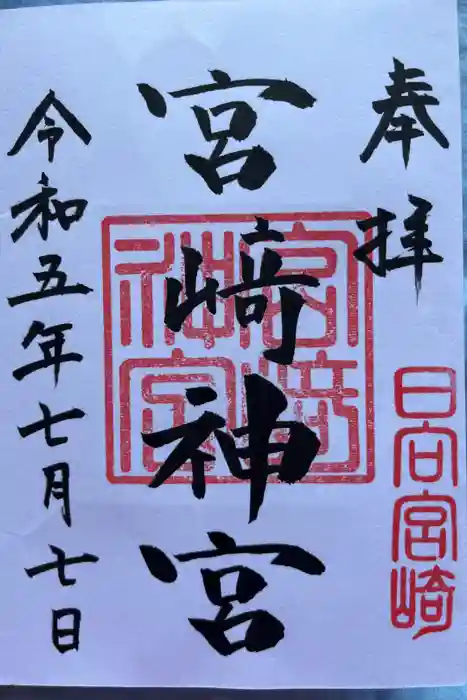 奉拝
日向宮崎
宮崎神宮
宮﨑神宮
令和五年七月七日